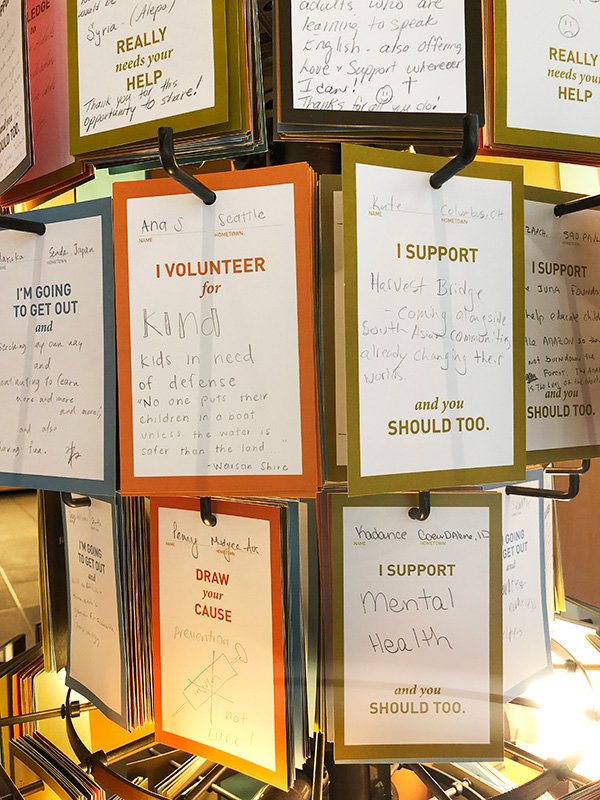 would be
Syria - (Alepo)
REALLY
needs your
HELP
Thank you for this
opportunity to share!
adults who are
learning to speak
English - also offering
Love & Support wherever
I can!
Thanks for all you do!
REALLY
needs your
HELP
TOO.
Sendai, Japan
NAME HOMETOWN
I'M GOING
TO GET OUT
and
my own way
and
continuing to learn
more and more
and more!
and also
having fun.
Ana S Seattle
NAME HOMETOWN
I VOLUNTEER
for
KIND
Kids in need
of defense
"No one puts their
children in a boat
unless the water is
safer than the land..."
- Warsan Shire
Kate Columbus, OH
NAME HOMETOWN
I SUPPORT
Harvest Bridge
- Coming alongside
South Asian communities
already changing their
worlds.
and you
SHOULD TOO.
SAO PAUL
HOMETOWN
I SUPPORT
JUMA FOUNDA
help educate
AMAZON so
not burn down the
Forest.
of the World
and you
SHOULD TOO.
I'M GOING
TO GET OUT
and
Penny
NAME HOMETOWN
DRAW
your
CAUSE
Prevention
not
cure!
Kadance Coeur D'Alene, ID
NAME HOMETOWN
I SUPPORT
Mental
Health
and you
SHOULD TOO.
GOING
GET OUT
and